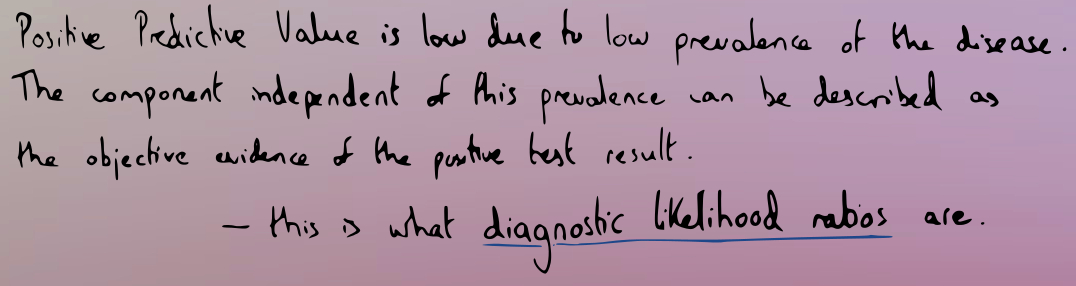 Positive Predictive Value is low due to low prevalence of the disease.
The component independent of this prevalence can be described as
the objective evidence of the positive test result.
— this is what diagnostic likelihood ratios are.